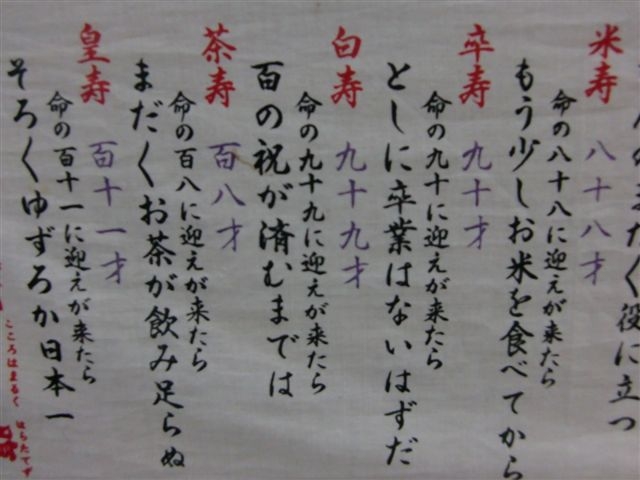 まだ〱役に立つ
米寿 八十八才
命の八十八に迎えが来たら
もう少しお米を食べてから
卒寿 九十才
命の九十に迎えが来たら
としに卒業はないはずだ
白寿 九十九才
命の九十九に迎えが来たら
百の祝が済むまでは
茶寿 百八才
命の百八に迎えが来たら
まだ〱お茶が飲み足らぬ
皇寿 百十一才
命の百十一に迎えが来たら
そろ〱ゆずろか日本一
こころはまるく
はらたてず